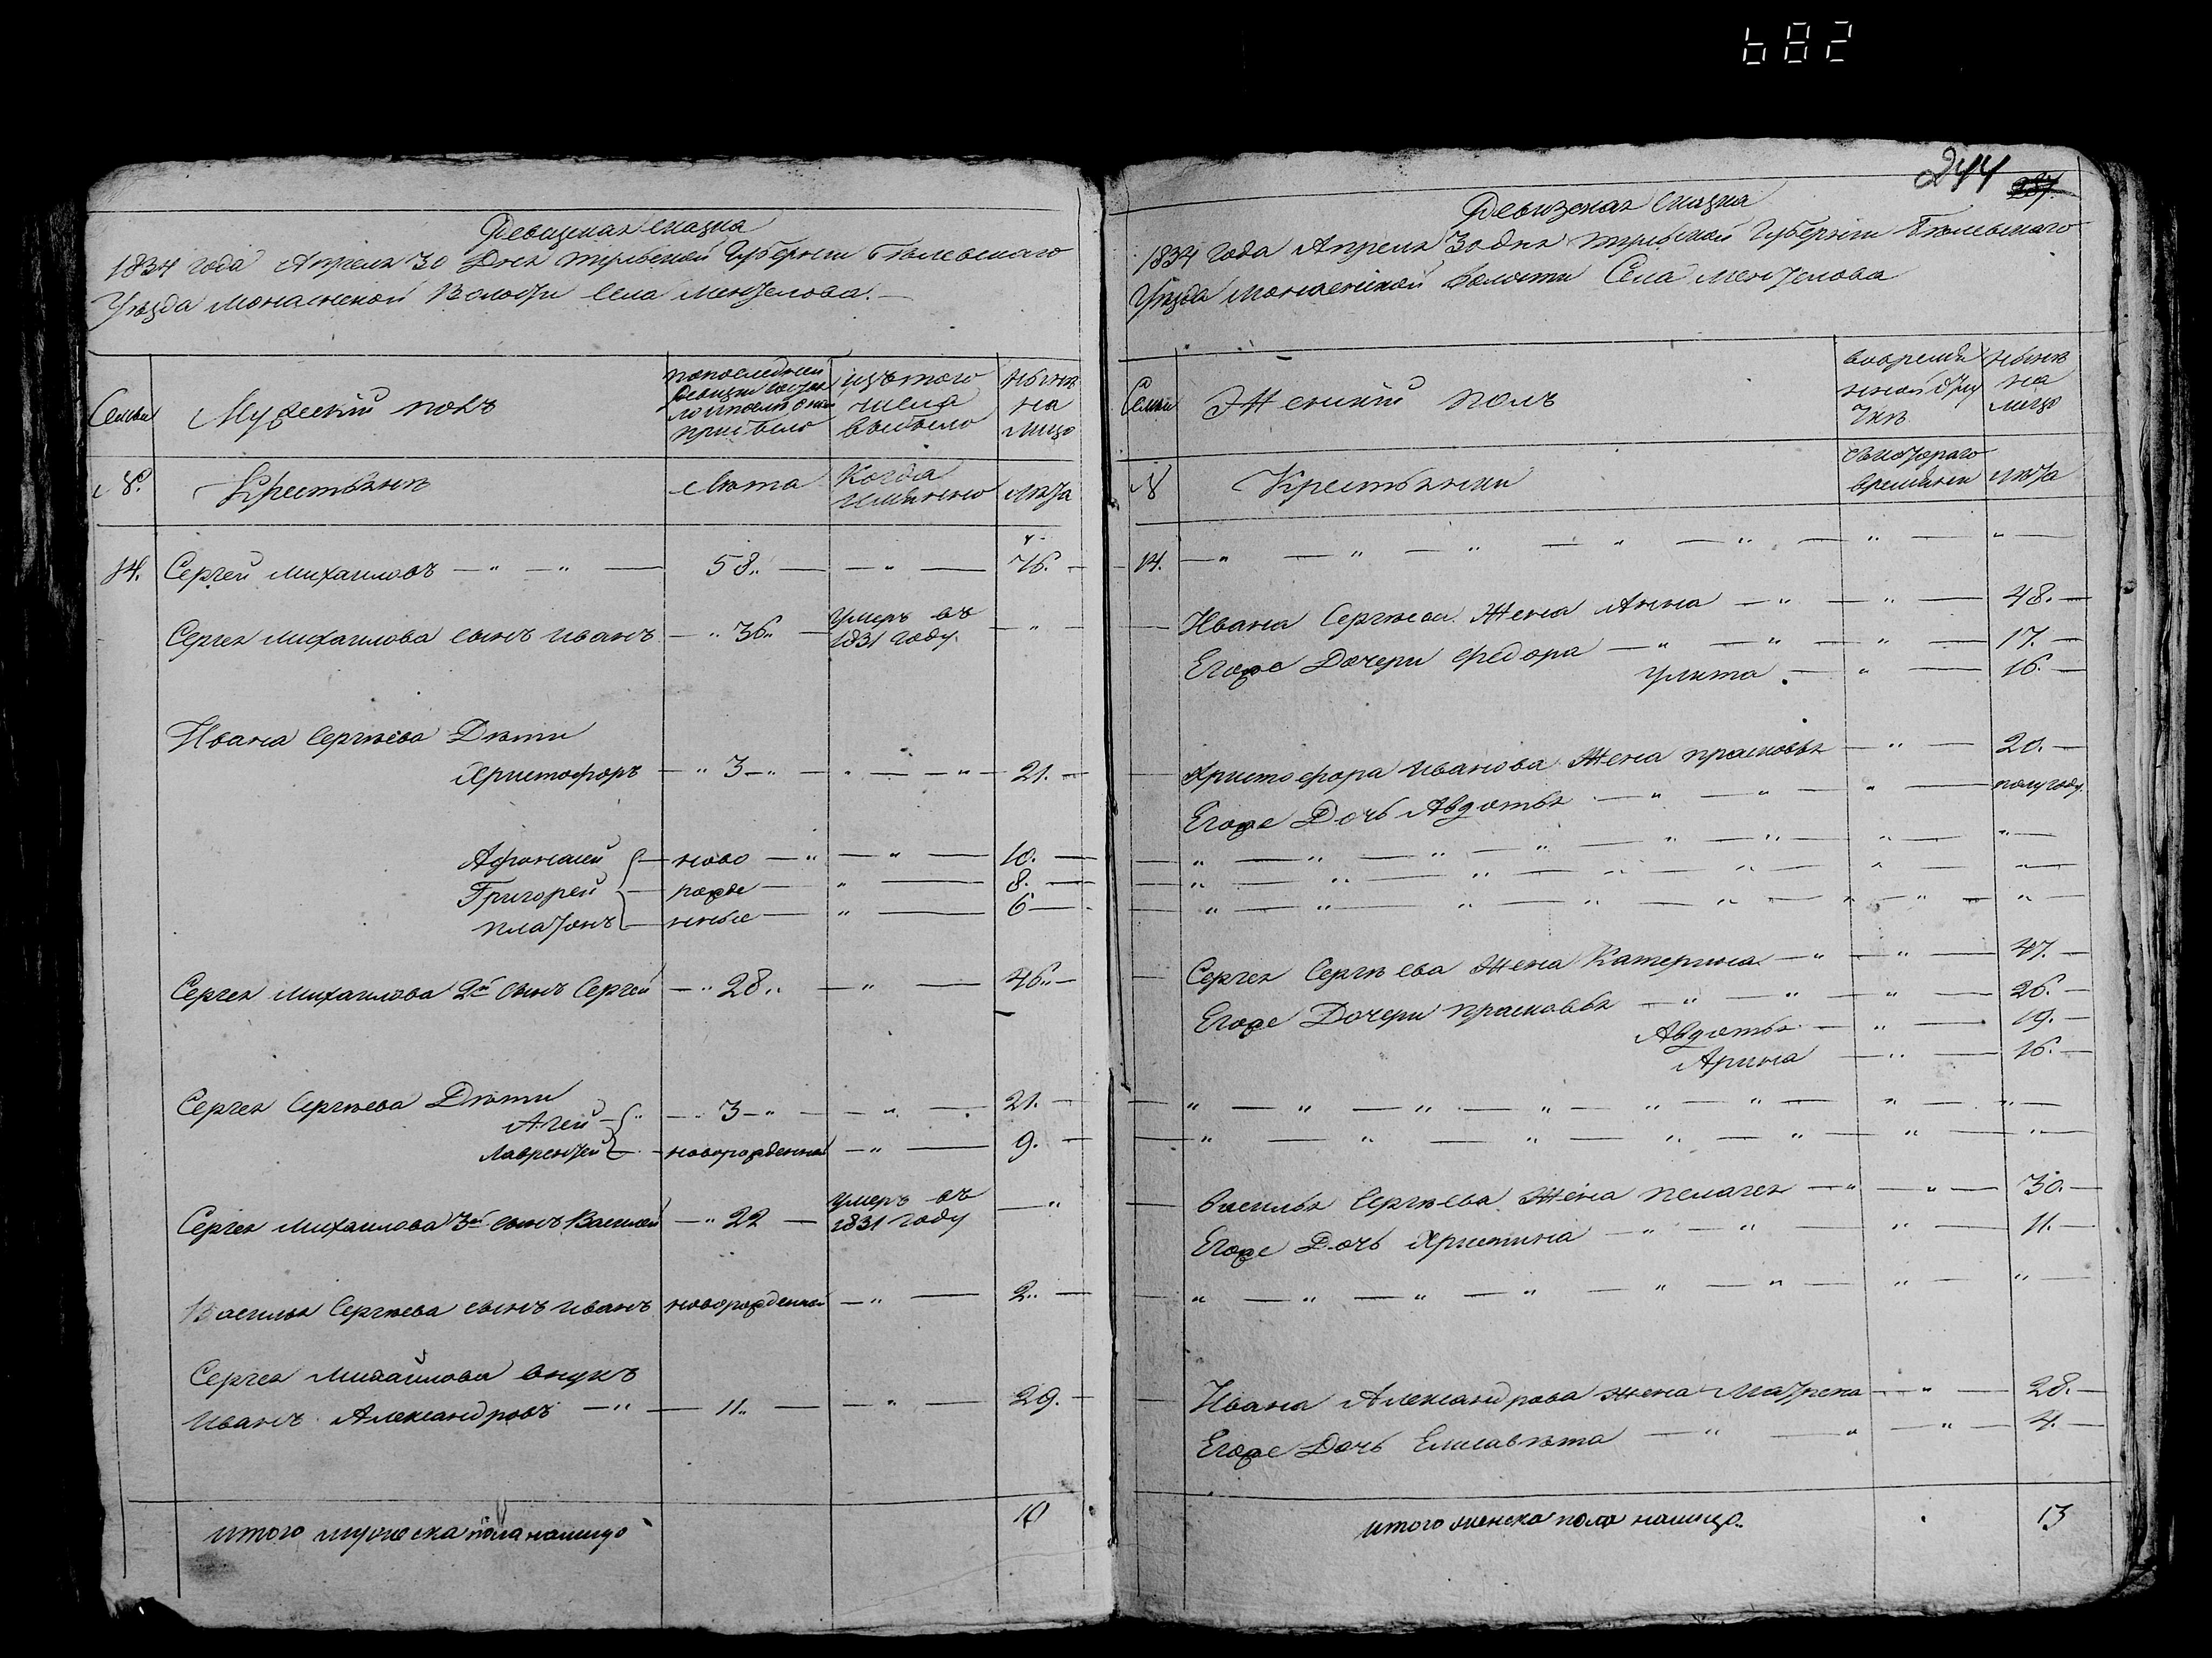 682
Ревизская сказка
1834 года Апреля 30 Дня Тульской Губернии Бѣлевскаго
Уѣзда Монаенской Волости Села Ментелова.
Семьи
Мужеский полъ
изъ того числа выбыло
нынѣ на лицо
№.
Крестьяня
Лѣта
Когда имянно
Лѣта
14. Сергей Михаиловъ 58. 76.
Сергея Михаилова сынъ Иванъ 36. умеръ въ 1831 году
Ивана Сергѣева Дѣти
Христофоръ 3 21.
Афонасей ново 10.
Григорей рожде 8.
Платонъ нные 6
Сергея Михаилова 2й сынъ Сергей 28. 46.
Сергея Сергѣева Дѣти
Агей 3 21.
Лаврентей новорожденной 9.
Сергея Михаилова 3й сынъ Василей 22 умеръ въ 1831 году
Василья Сергѣева сынъ Иванъ новорожденной 2.
Сергея Михайлова внукъ
Иванъ Александровъ 11. 29.
итого мужеска пола налицо 10
244
Ревизская Сказка
1834 Года Апреля 30 дня Тульской Губернии Бѣлевскаго
Уѣзда Монаенской Волости Села Ментелова
Семьи
Женский полъ
нынѣ на лицо
№
Крестьянки
съкотораго времяни
Лѣта
14.
Ивана Сергѣева Жена Анна 48.
Егоже Дочери Федора 17.
Улита 16.
Христофора Иванова Жена Прасковья 20.
Егоже Дочь Авдотья полугоду.
Сергея Сергѣева Жена Катерина 47.
Егоже Дочери Прасковья 26.
Авдотья 19.
Арина 16.
Василья Сергѣева Жена Пелагея 30.
Егоже Дочь Христина 11.
Ивана Александрова жена Матрена 28.
Егоже Дочь Елисавѣта 4.
итого женска пола налицо. 13